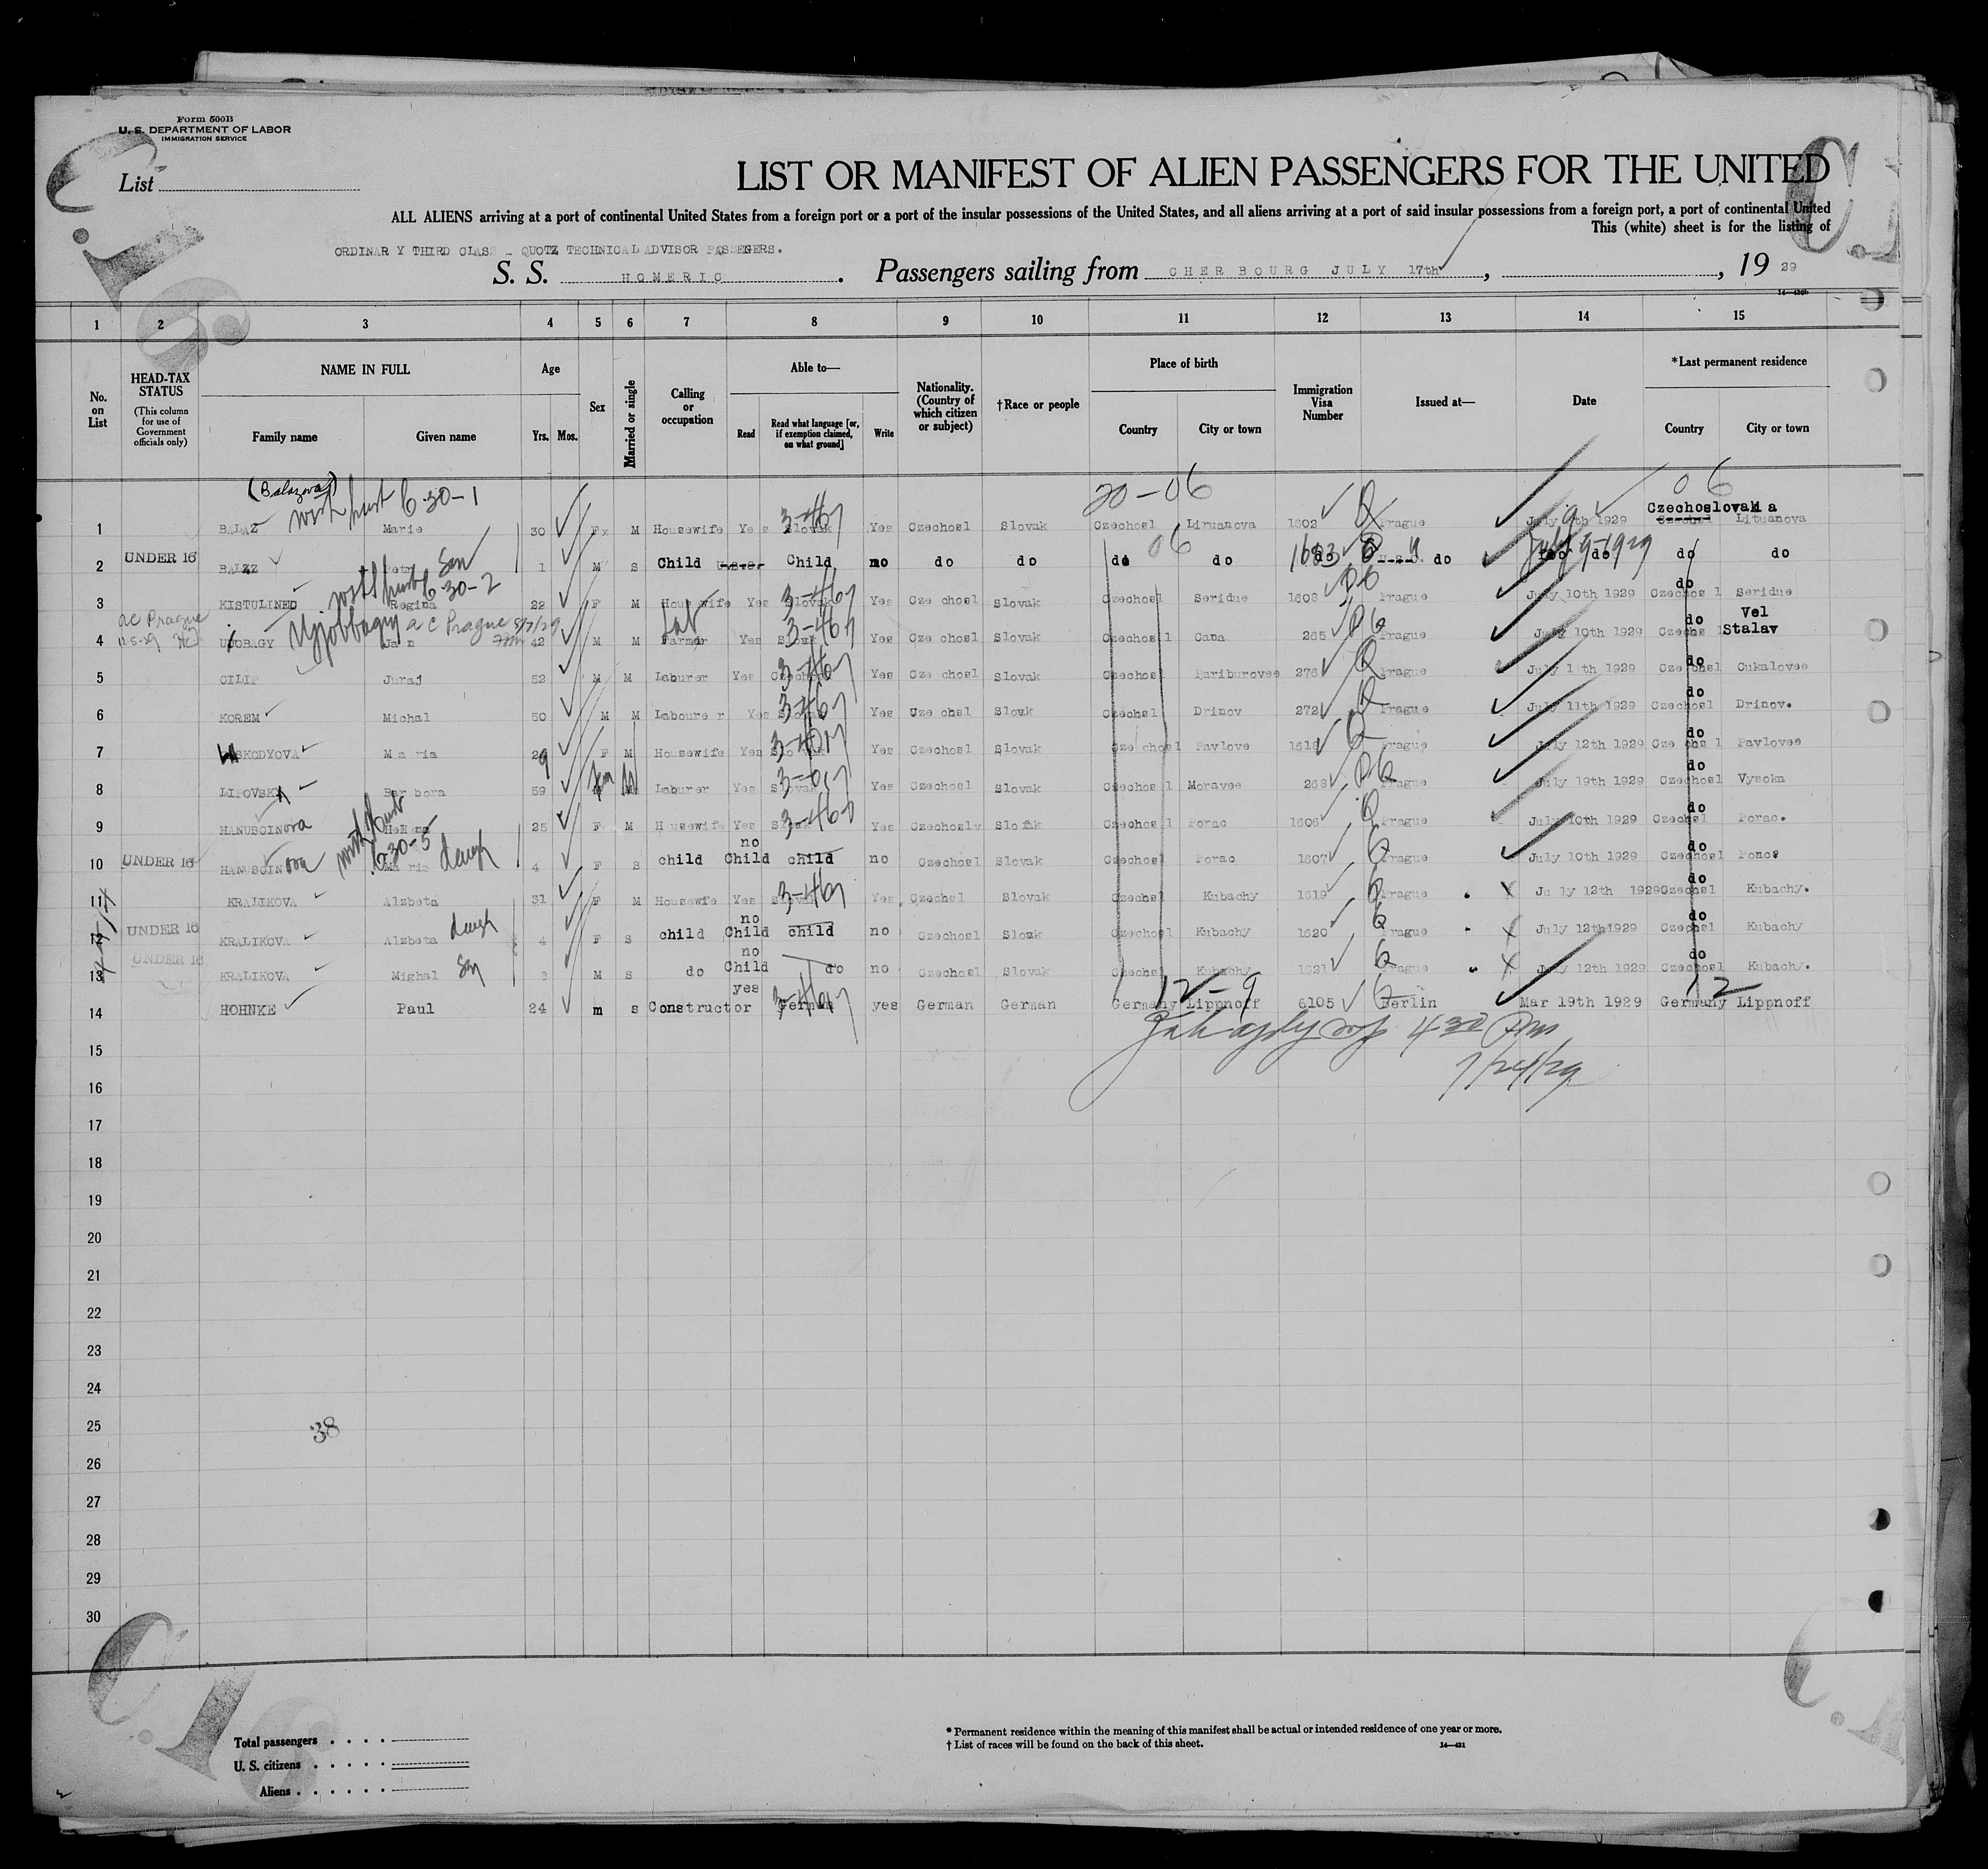 Form 500B
U. S. DEPARTMENT OF LABOR
IMMIGRATION SERVICE
List
LIST OR MANIFEST OF ALIEN PASSENGERS FOR THE UNITED
ALL ALIENS arriving at a port of continental United States from a foreign port or a port of the insular possessions of the United States, and all aliens arriving at a port of said insular possessions from a foreign port, a port of continental United
This (white) sheet is for the listing of
ORDINARY THIRD CLASS - QUOTZ TECHNICAL ADVISOR PASSEGERS.
S. S. HOMERIC. Passengers sailing from CHERBOURG JULY 17th, , 19 29
14—420b
1 2 3 4 5 6 7 8 9 10 11 12 13 14 15
No. on List
HEAD-TAX STATUS (This column for use of Government officials only)
NAME IN FULL
Family name Given name
Age
Yrs. Mos.
Sex
Married or single
Calling or occupation
Able to—
Read Read what language [or, if exemption claimed, on what ground] Write
Nationality. (Country of which citizen or subject)
†Race or people
Place of birth
Country City or town
Immigration Visa Number
Issued at—
Date
*Last permanent residence
Country City or town
(Balazova) with husb 6-30-1 20-06 06
1 BALAZ Marie 30 F M Housewife Yes Slovak 3-467 Yes Czechosl Slovak Czechosl Liruanova 1602 Prague July 9th 1929 Czechoslovakia Lituanova
2 UNDER 16 BALZZ Petr Son 1 M S Child U.S.C. Child no do do do 06 do 1603 do July 9-1929 do do
with husb 6-30-2
3 KISTULINEC Regina 22 F M Housewife Yes Slovak 3-467 Yes Czechosl Slovak Czechosl Seridue 1608 Prague July 10th 1929 do Czechosl Seridue
ac Prague
4 UJOBAGY Ujjobbagy a c Prague 8/7/29 Jan 42 M M Farmer Lab Yes 3-467 Yes Czechosl Slovak Czechosl Cana 265 Prague July 10th 1929 do Czechosl Vel Stalav
5 CILIP Juraj 52 M M Laburer Yes 3-467 Yes Czechosl Slovak Czechosl Pariburovee 276 Prague July 11th 1929 do Czechosl Cukalovee
6 KOREM Michal 50 M M Labourer Yes 3-467 Yes Uzechsl Slovk Czechsl Drinov 272 Prague July 11th 1929 do Czechosl Drinov.
7 SKODYOVA Maria 29 F M Housewife Yes Yes Czechosl Slovak Czechosl Pavlove 1618 Prague July 12th 1929 do Czechosl Pavlovee
8 LIPOVSKA Barbora 59 Fem W Laburer Yes Slovak Yes Czechosl Slovak Czechosl Moravee 268 Prague July 19th 1929 do Czechosl Vysoka
9 HANUSCINova Helena 25 F M Housewife Yes 3-467 Yes Czechoslv Slofak Czechosl Porac 1606 Prague July 10th 1929 do Czechsl Porac.
with husb 6-30-5
10 UNDER 16 HANUSCINova Maria daugh 4 F S child no Child child no Czechosl Slovak Czechosl Porac 1607 Prague July 10th 1929 do Czechosl Ponce
11 KRALIKOVA Alzbeta 31 F M Housewfe Yes Slovak 3-467 Yes Czechsl Slovak Czechsl Kubachy 1619 Prague July 12th 1929 do Czechsl Kubachy.
12 UNDER 16 KRALIKOVA Alzbeta daugh 4 F S child no Child child no Czechosl Slovak Czechosl Kubachy 1620 Prague July 12th 1929 do Czechsl Kubachy
13 UNDER 16 KRALIKOVA Mighal Son 3 M S do no Child do no Czechosl Slovak Czechsl Kubachy 1621 Prague July 12th 1929 do Czechosl Kubachy.
14 HOHNKE Paul 24 m s Constructor yes German yes German German Germany Lippnoff 12-9 6105 Berlin Mar 19th 1929 Germany 12 Lippnoff
15
4 30 Pm
16
7/24/29
17
18
19
20
21
22
23
24
25
38
26
27
28
29
30
Total passengers . . . .
U. S. citizens . . . . .
Aliens . . . . . .
* Permanent residence within the meaning of this manifest shall be actual or intended residence of one year or more.
† List of races will be found on the back of this sheet.
14—421